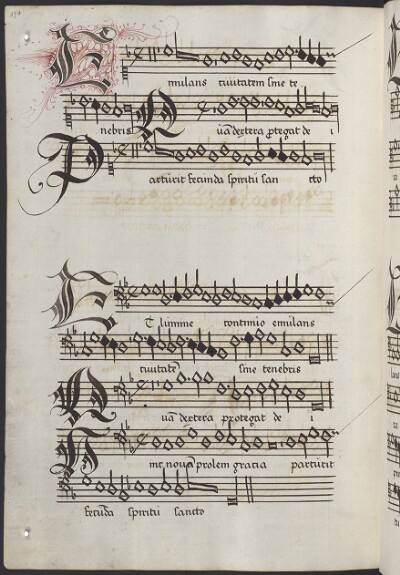 Emilans civitatem sine te
nebris Quā dextera protegat de i
Parturit fecunda spiritū san cto
Et lumine continuo emilans
civitatē sine tenebris
Quā dextera protegat de i
Nunc novā prolem gracia parturit
fecūda spiritū sancto